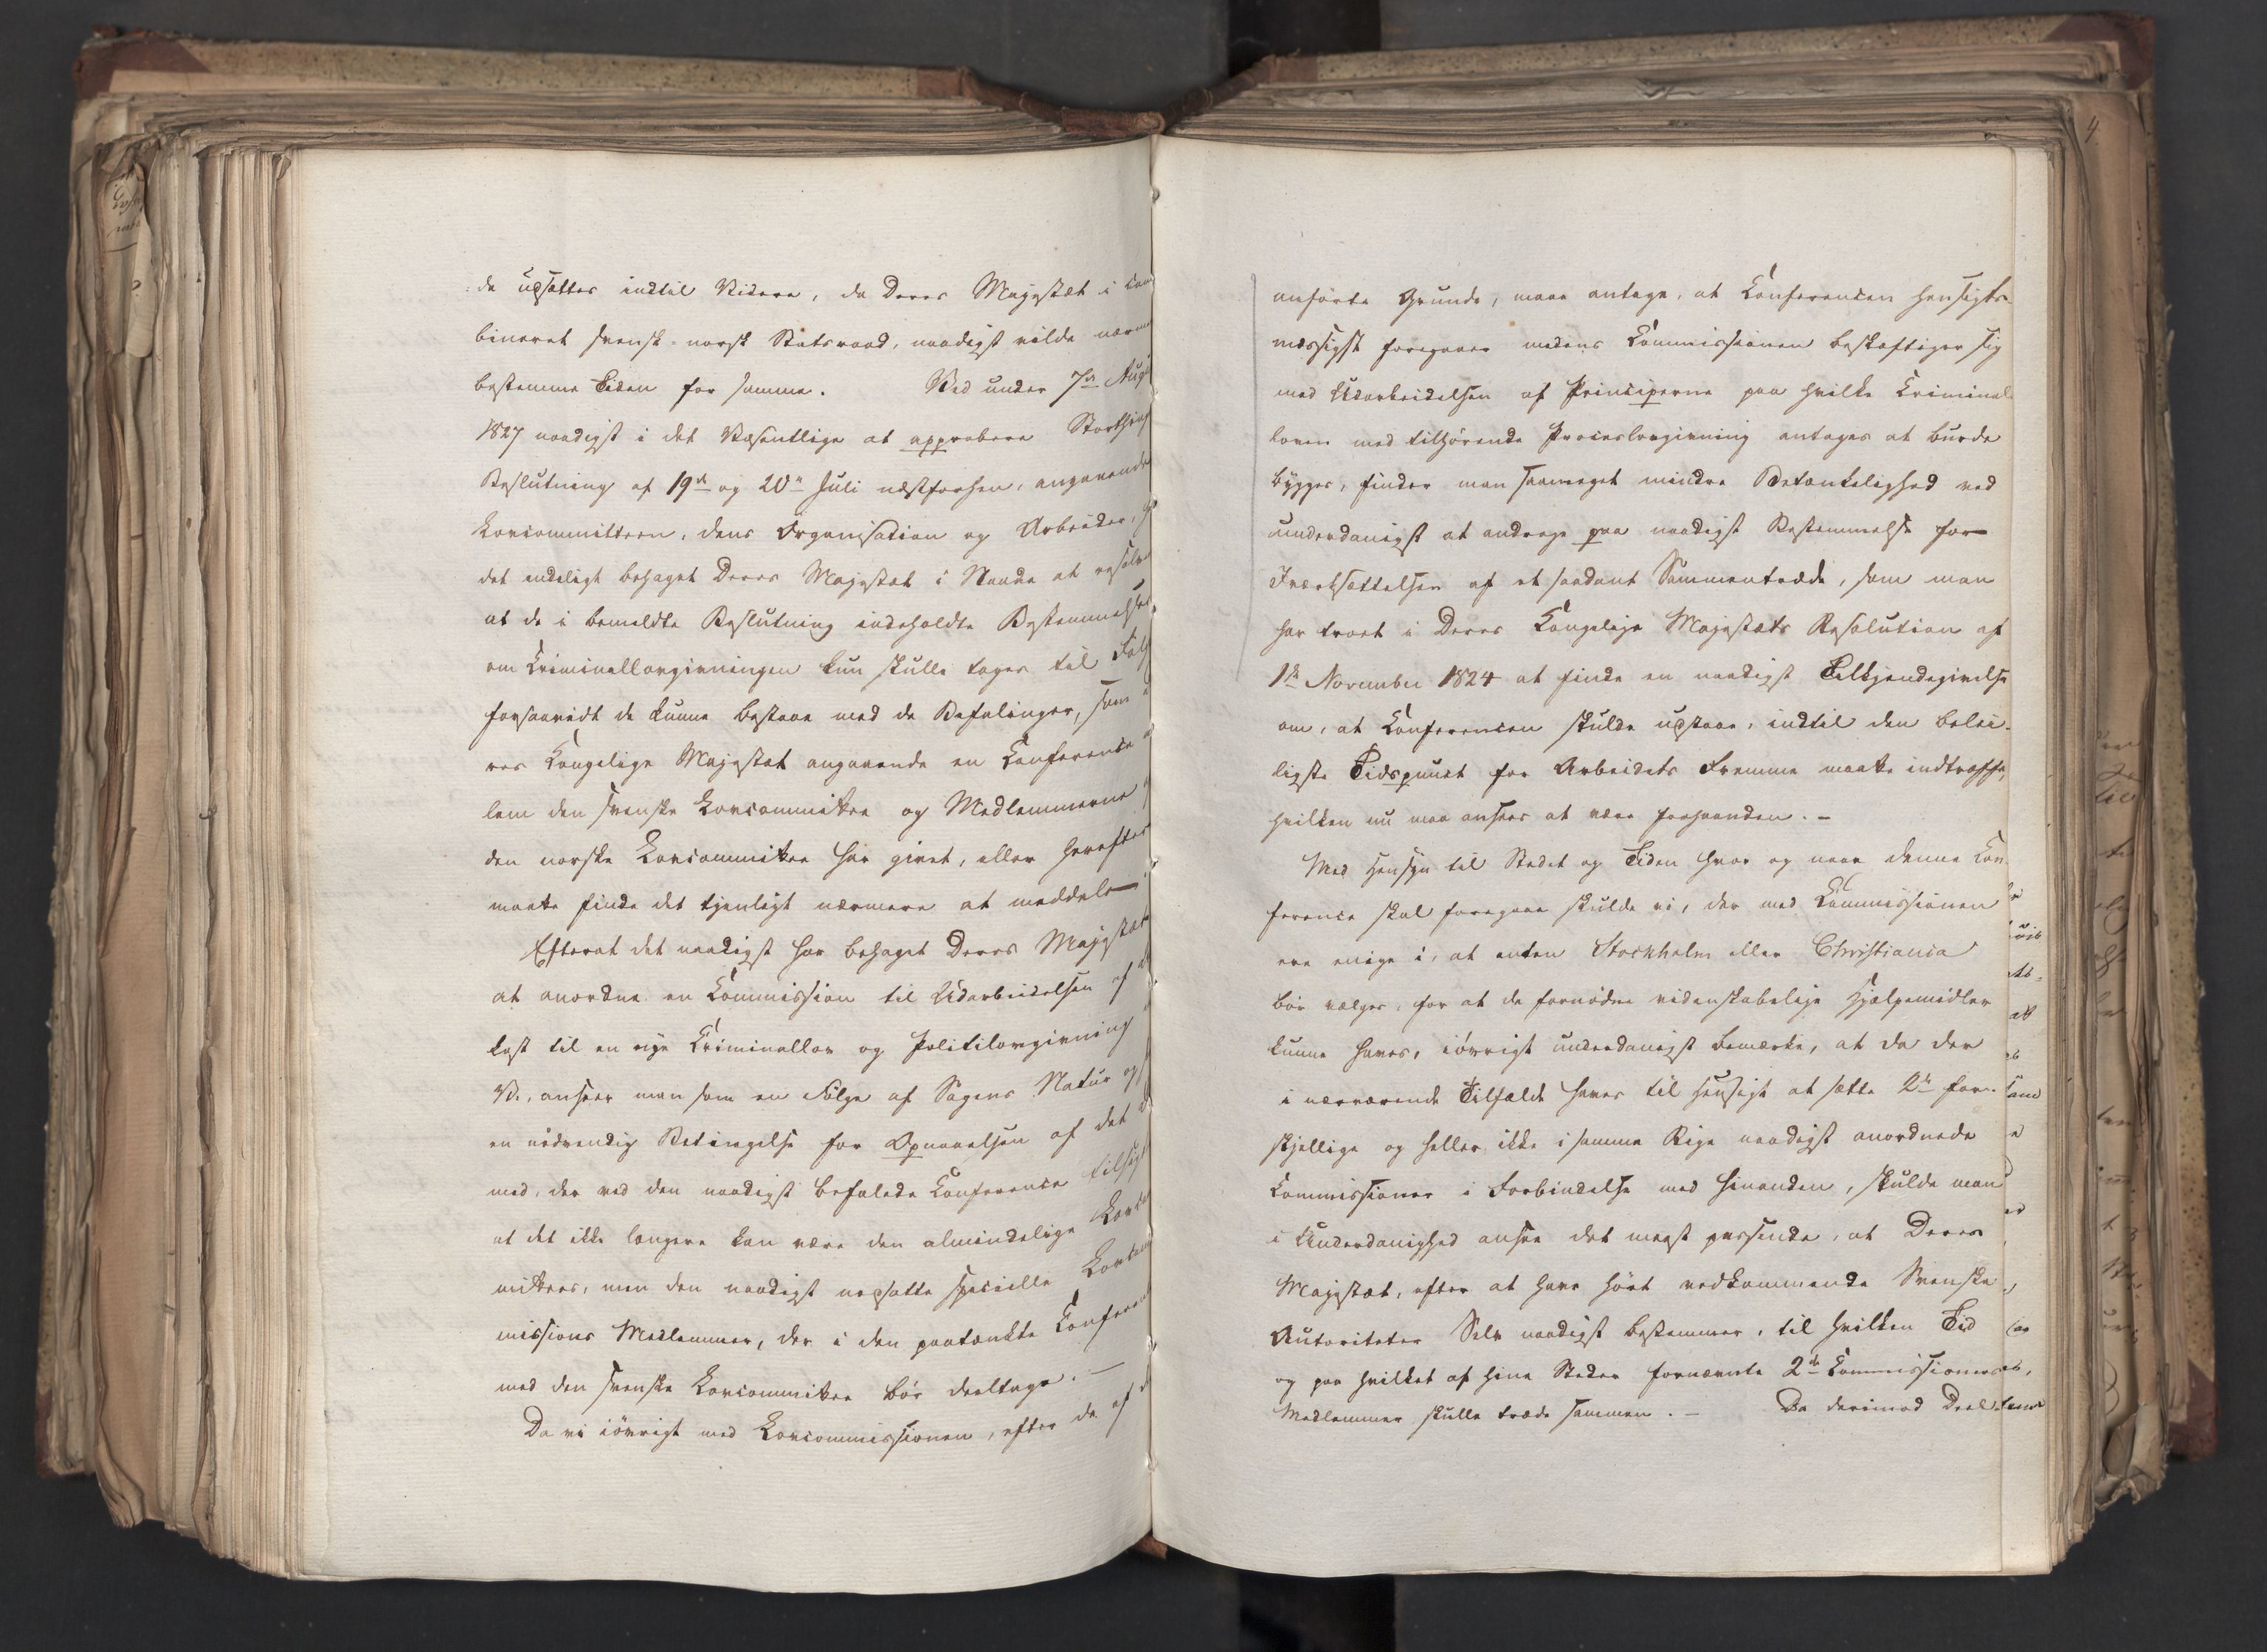 de udsættes indtil Videre, da Deres Majestæt i com
bineret svensk-norsk Statsraad, naadigst vilde nærme
bestemme Tiden for samme. Ved under 7de Augt
1827 naadigst i det Væsentlige at approbere Storthing
Beslutning af 19de og 20de Juli næstforhen, angaaende
Lovcommitteen, dens Organisation og Arbeider,
det endeligt behaget Deres Majestæt i Naade at resolve
at de i bemeldte Beslutning indeholdte Bestemmelser
om Criminallovgivningen kun skulle tages til Følg
forsaavidt de kunne bestaae med de Befalinger, som
res Kongelige Majestæt angaaende en Conference
lem den svenske Lovcommitee og Medlemmerne
den norske Lovcommitee har givet, eller herefter
maatte finde det tjenligt nærmere at meddele
Efterat det naadigst har behaget Deres Majestæt
at anordne en Commission til Udarbeidelsen af
kast til en nye Criminallov og Politilovgivning
V., anseer man som en Følge af Sagens Natur og
en nødvendig Betingelse for Opnaaelsen af det
med, der ved den naadigst befalede Conference tilsigt
at det ikke længere kan være den almindelige Lovco
mitees, men den naadigst nedsatte specielle Lovkom
missions Medlemmer, der i den paatænkte Conferen
med den svenske Lovcommitee bør deeltage. —
Da vi iøvrigt med Lovcommissionen, efter de af
anførte Grunde, maae antage, at Conferencen hensigts-
mæssigst foregaaer medens Commissionen beskæftiger sig
med Udarbeidelsen af Principerne paa hvilke Criminal
loven med tilhørende Proceslovgivning antages at burde
bygges, finder man saameget mindre Betænkelighed ved
underdanigst at andrage paa naadigst Bestemmelse for
Iværksættelsen af et saadant Sammentræde, som man
har troet i Deres Kongelige Majestæts Resolution af
1ste November 1824 at finde en naadigst Tilkjendegivelse
om, at Conferencen skulde udstaae, indtil den belei-
ligste Tidspunct for Arbeidets Fremme maatte indtræffe,
hvilken nu maa ansees at være forhaanden. —
Med Hensyn til Stedet og Tiden hvor og naar denne Con
ference skal foregaae skulde vi, der med Commissionen
ere enige i, at enten Stockholm eller Christiania
bør vælges, for at de fornødne videnskabelige Hjælpemidler
kunne haves, iøvrigt underdanigst bemærke, at da der
i nærværende Tilfælde haves til Hensigt at sætte 2de for-
skjellige og heller ikke i samme Rige naadigst anordnede
Commissioner i Forbindelse med hinanden, skulde man
i Underdanighed ansee det meest passende, at Deres
Majestæt, efter at have hørt vedkommende Svenske
Autoriteter Selv naadigst bestemmer, til hvilken Tid
og paa hvilket af hine Steder fornævnte 2de Commissioners
Medlemmer skulle træde sammen. — Da derimod Deel